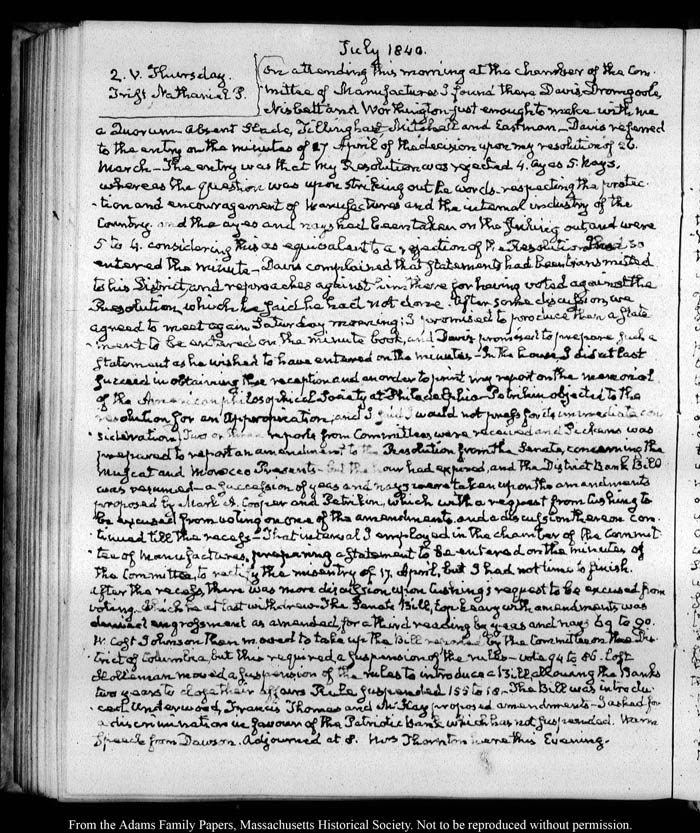 July 1840.
2. V. Thursday.
Trist Nathaniel P.
On attending this morning at the chamber of the Com-
mittee of Manufactures I found there Davis, Dromgoole,
Nisbett and Worthington just enough to make with me
a Quorum. Absent Slade, Tillinghast Mitchell and Eastman. Davis referred
to the entry on the minutes of 17 April of the decision upon my resolution of 26
March. The entry was that my Resolution was rejected 4. ayes 5. nays.
whereas the question was upon striking out the words respecting the protec-
tion and encouragement of Manufactures and the internal industry of the
Country. and the ayes and nays had been taken on the striking out and were
5 to 4. considering this as equivalent to a rejection of the Resolution I had so
entered the minute. Davis complained that statements had been transmitted
to his District, and reproaches against him there for having voted against the
Resolution, which he said he had not done. After some discussion, we
agreed to meet again Saturday morning; I promised to produce then a state-
ment to be entered on the minute book, and Davis promised to prepare such a
statement as he wished to have entered on the minutes. In the house, I did at last
succeed in obtaining the reception and an order to print my report on the memorial
of the American philosophical Society at Philadelphia. Petrikin objected to the
resolution for an appropriation, and I said I would not press for its immediate con-
sideration. Two or three reports from Committees were received and Pickens was
prepared to report an amendment to the Resolution from the Senate, concerning the
Muscat and Morocco Presents. but the hour had expired, and the District Bank Bill
was resumed. a succession of yeas and nays were taken upon the amendments
proposed by Mark A. Cooper and Petrikin, which with a request from Cushing to
be excused from voting on one of the amendments, and a discussion thereon con-
tinued till the recess. That interval I employed in the chamber of the Commit-
tee of Manufactures, preparing a statement to be entered on the minutes of
the Committee, to rectify the misentry of 17. April, but I had not time to finish.
After the recess, there was more discussion upon Cushing's request to be excused from
voting. Which he at last withdrew. The Senate Bill, with amendments was
denied engrossment as amended, for a third reading by yeas and nays 69 to 90.
W. Cost Johnson then moved to take up the Bill reported by the Committee on the Dis-
trict of Columbia, but this required a suspension of the rules. vote 94 to 86. lost
Holleman moved a suspension of the rules to introduce a Bill allowing the Banks
two years to close their affairs. Rule suspended 155 to 18. The Bill was introdu-
ced. Underwood, Francis Thomas and McKay proposed amendments. I asked for
a discrimination in favour of the Patriotic Bank which has not suspended. Warm
speech from Dawson. Adjourned at 8. Mrs Thornton here this Evening.
From the Adams Family Papers, Massachusetts Historical Society. Not to be reproduced without permission.